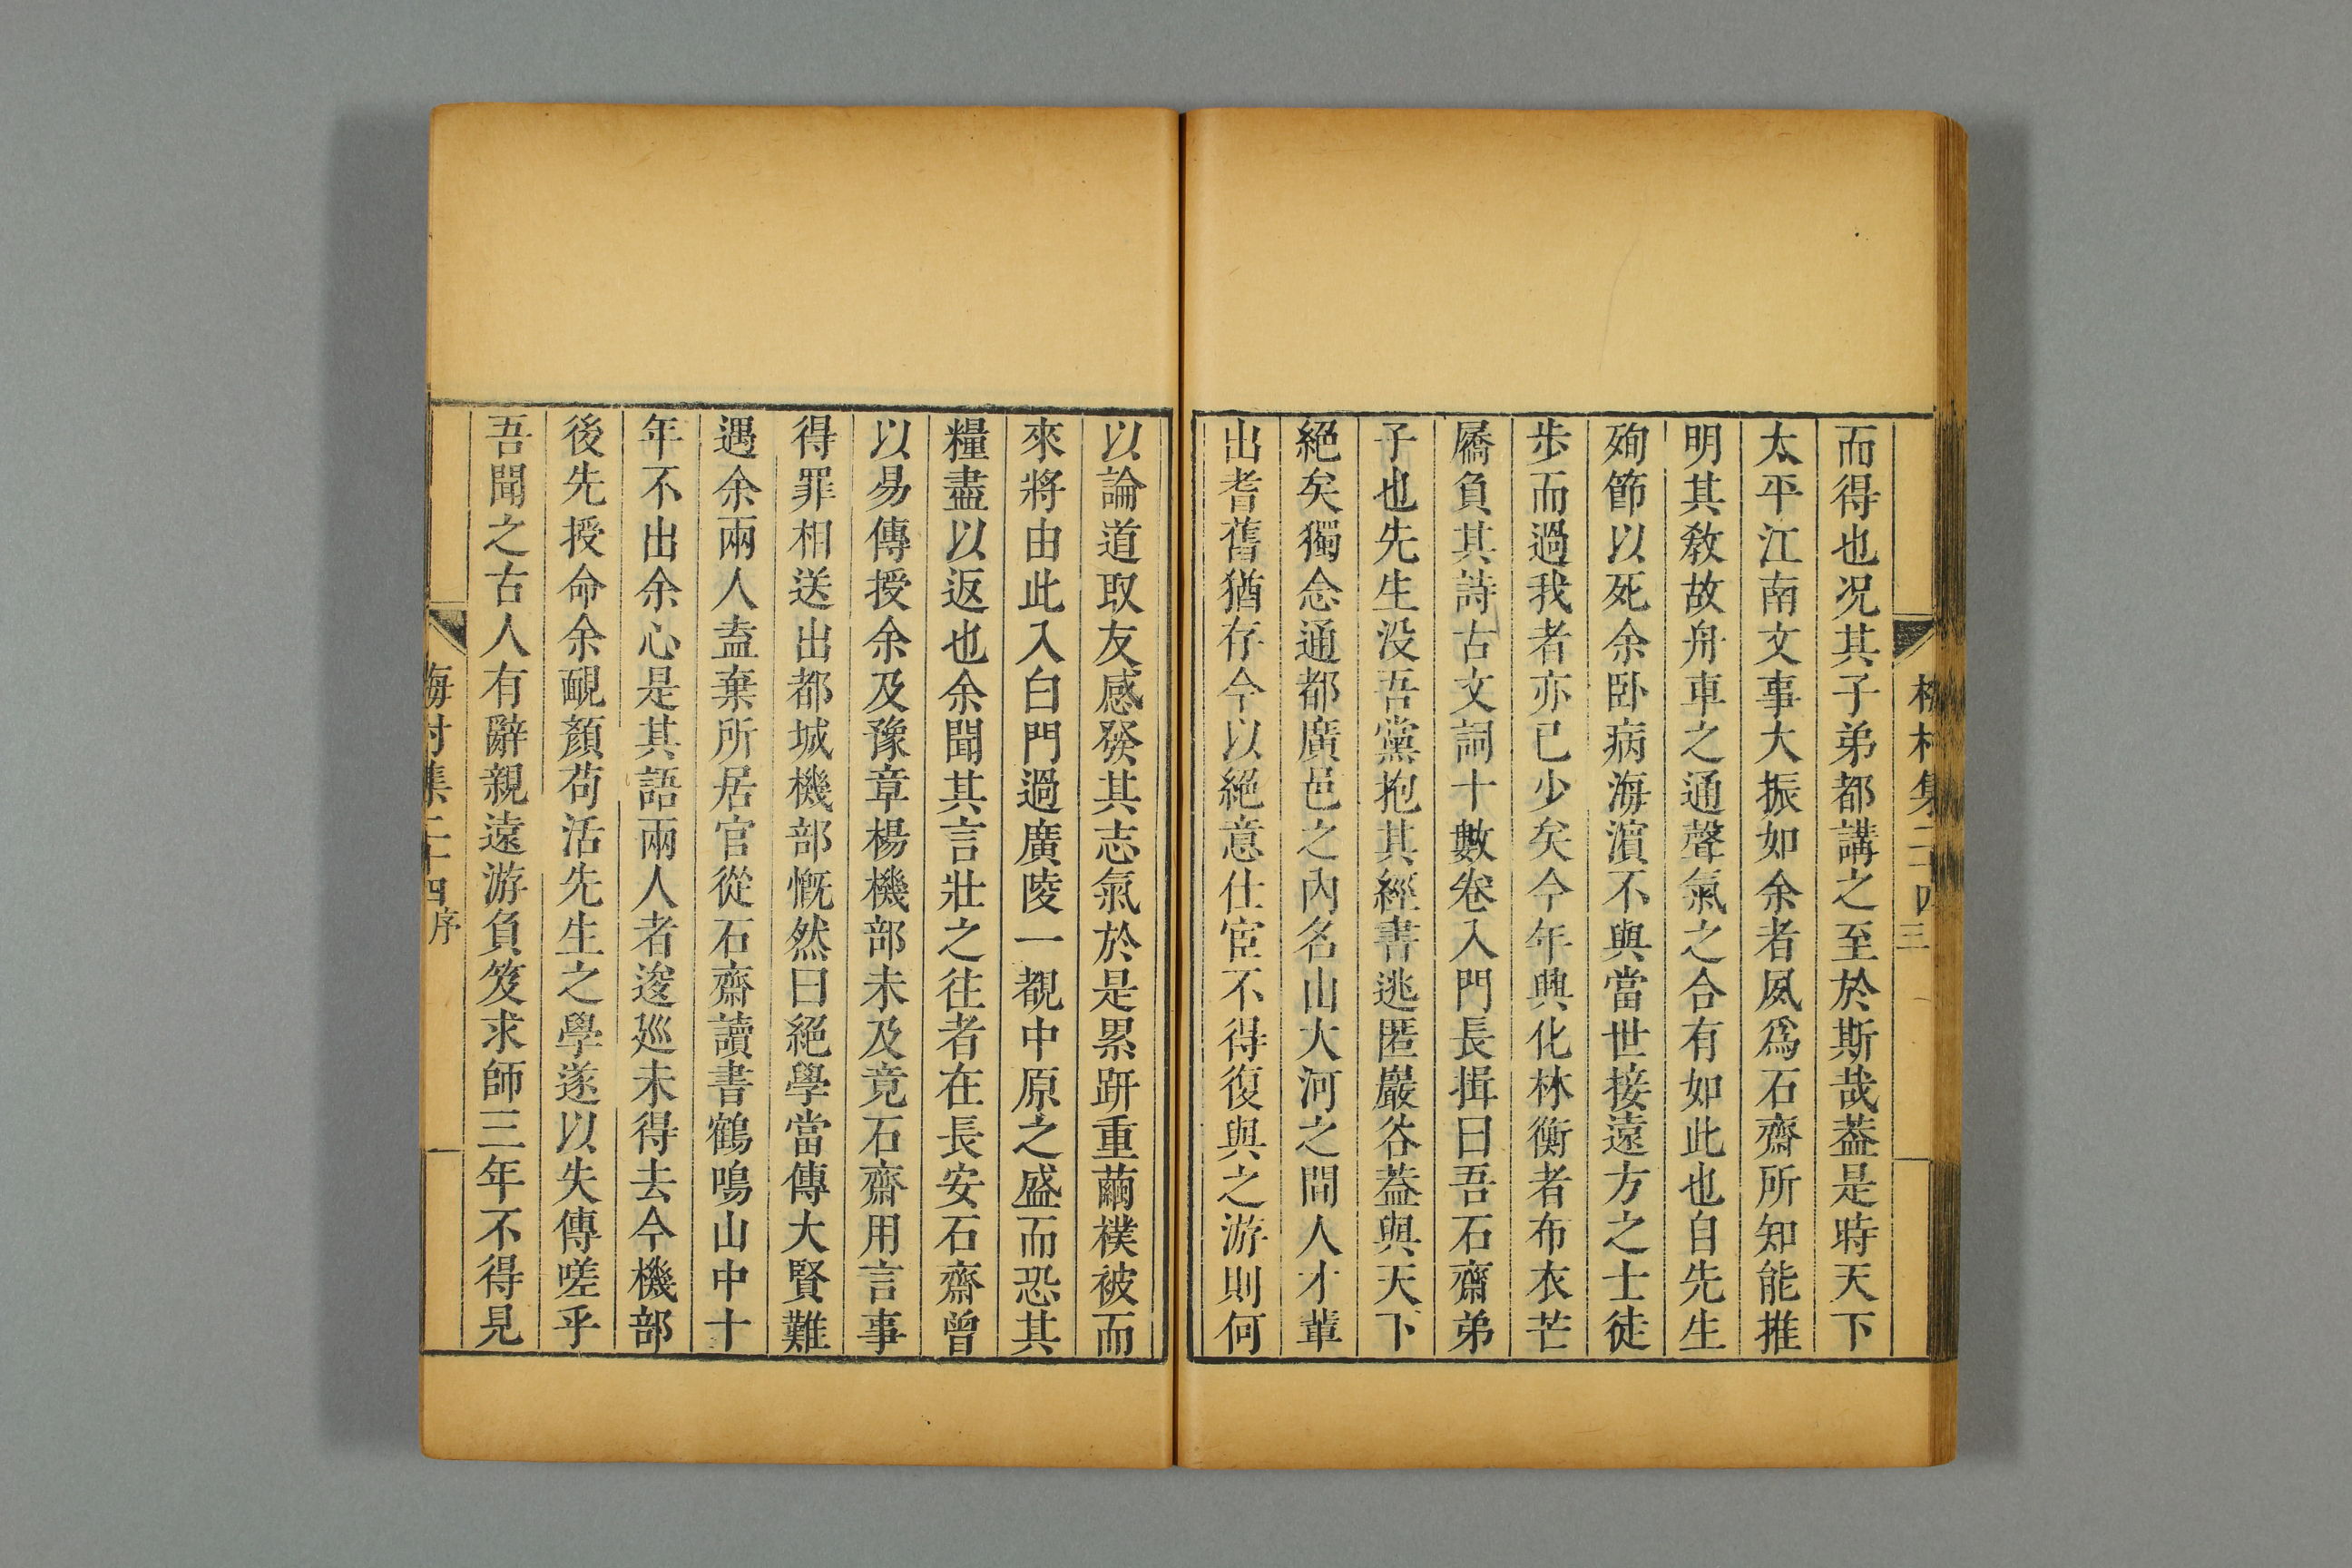 而得也况其子弟都講之至於斯哉葢是時天下
太平江南文事大振如余者夙爲石齋所知能推
明其敎故舟車之通聲氣之合有如此也自先生
殉節以死余卧病海濵不與當世接遠方之士徒
歩而過我者亦已少矣今年興化林衡者布衣芒
屩負其詩古文詞十數卷入門長揖曰吾石齋弟
子也先生没吾黨抱其經書逃匿巖谷葢與天下
絕矣獨念通都廣邑之内名山大河之間人才輩
出耆舊猶存今以絕意仕宦不得復與之游則何
以論道取友感發其志氣於是累趼重繭襆被而
來將由此入白門過廣陵一覩中原之盛而恐其
糧盡以返也余聞其言壯之往者在長安石齋曾
以易傳授余及豫章楊機部未及竟石齋用言事
得罪相送出都城機部慨然曰絕學當傳大賢難
遇余兩人盍棄所居官從石齋讀書鶴鳴山中十
年不出余心是其語兩人者逡廵未得去今機部
後先授命余靦顏苟活先生之學遂以失傳嗟乎
吾聞之古人有辭親遠游負笈求師三年不得見
梅村集二十四序